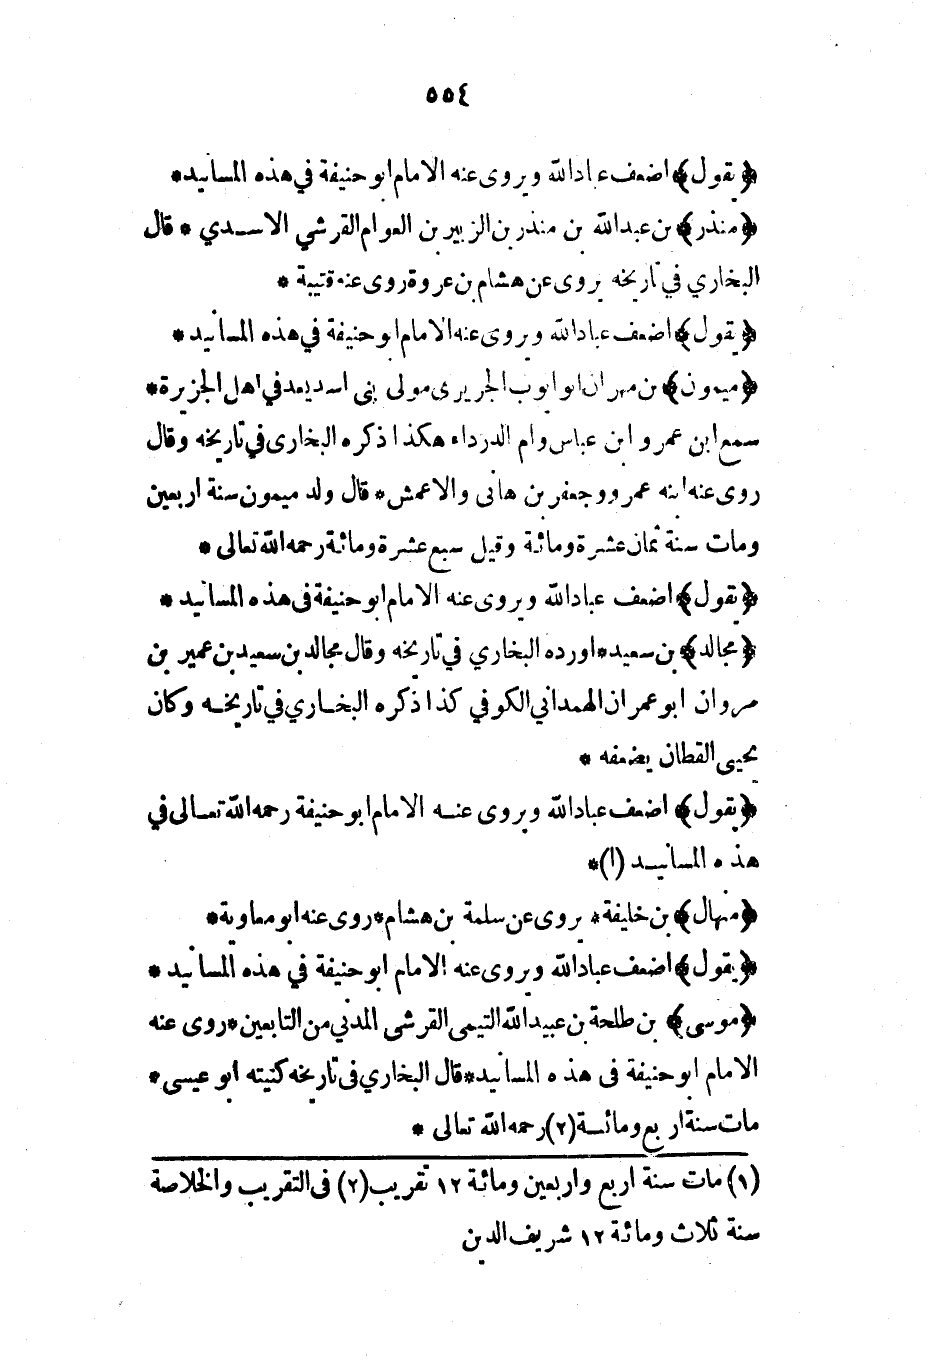 ٥٥٤
﴿يقول﴾ اضعف عبادالله ويروى عنه الامام ابو حنيفة في هذه المسانيد *
﴿منذر﴾ بن عبدالله بن منذر بن الزبير بن العوام القرشي الاسدي * قال
البخاري في تاريخه يروى عن هشام بن عروة روى عنه قتيبة *
﴿يقول﴾ اضعف عبادالله ويروى عنه الامام ابو حنيفة في هذه المسانيد *
﴿ميمون﴾ بن مهران ابو ايوب الجريرى مولى بنى اسد يعد في اهل الجزيرة *
سمع ابن عمر و ابن عباس وام الدرداء هكذا ذكره البخارى في تاريخه وقال
روى عنه ابنه عمرو وجعفر بن هانى والاعمش * قال ولد ميمون سنة اربعين
ومات سنة ثمان عشرة ومائة وقيل سبع عشرة ومائة رحمه الله تعالى *
﴿يقول﴾ اضعف عبادالله ويروى عنه الامام ابو حنيفة فى هذه المسانيد *
﴿مجالد﴾ بن سعيد * اورده البخاري في تاريخه وقال مجالد بن سعيد بن عمير بن
مروان ابو عمران الهمداني الكوفي كذا ذكره البخاري في تاريخه وكان
يحيى القطان يضعفه *
﴿يقول﴾ اضعف عبادالله ويروى عنه الامام ابو حنيفة رحمه الله تعالى في
هذه المسانيد (١) *
﴿منهال﴾ بن خليفة * يروى عن سلمة بن هشام * روى عنه ابو معاوية *
﴿يقول﴾ اضعف عبادالله ويروى عنه الامام ابو حنيفة في هذه المسانيد *
﴿موسى﴾ بن طلحة بن عبيد الله التيمى القرشى المدني من التابعين * روى عنه
الامام ابو حنيفة فى هذه المسانيد * قال البخاري فى تاريخه كنيته ابو عيسى *
مات سنة اربع ومائة (٢) رحمه الله تعالى *
(١) مات سنة اربع واربعين ومائة ١٢ تقريب (٢) فى التقريب والخلاصة
سنة ثلاث ومائة ١٢ شريف الدين